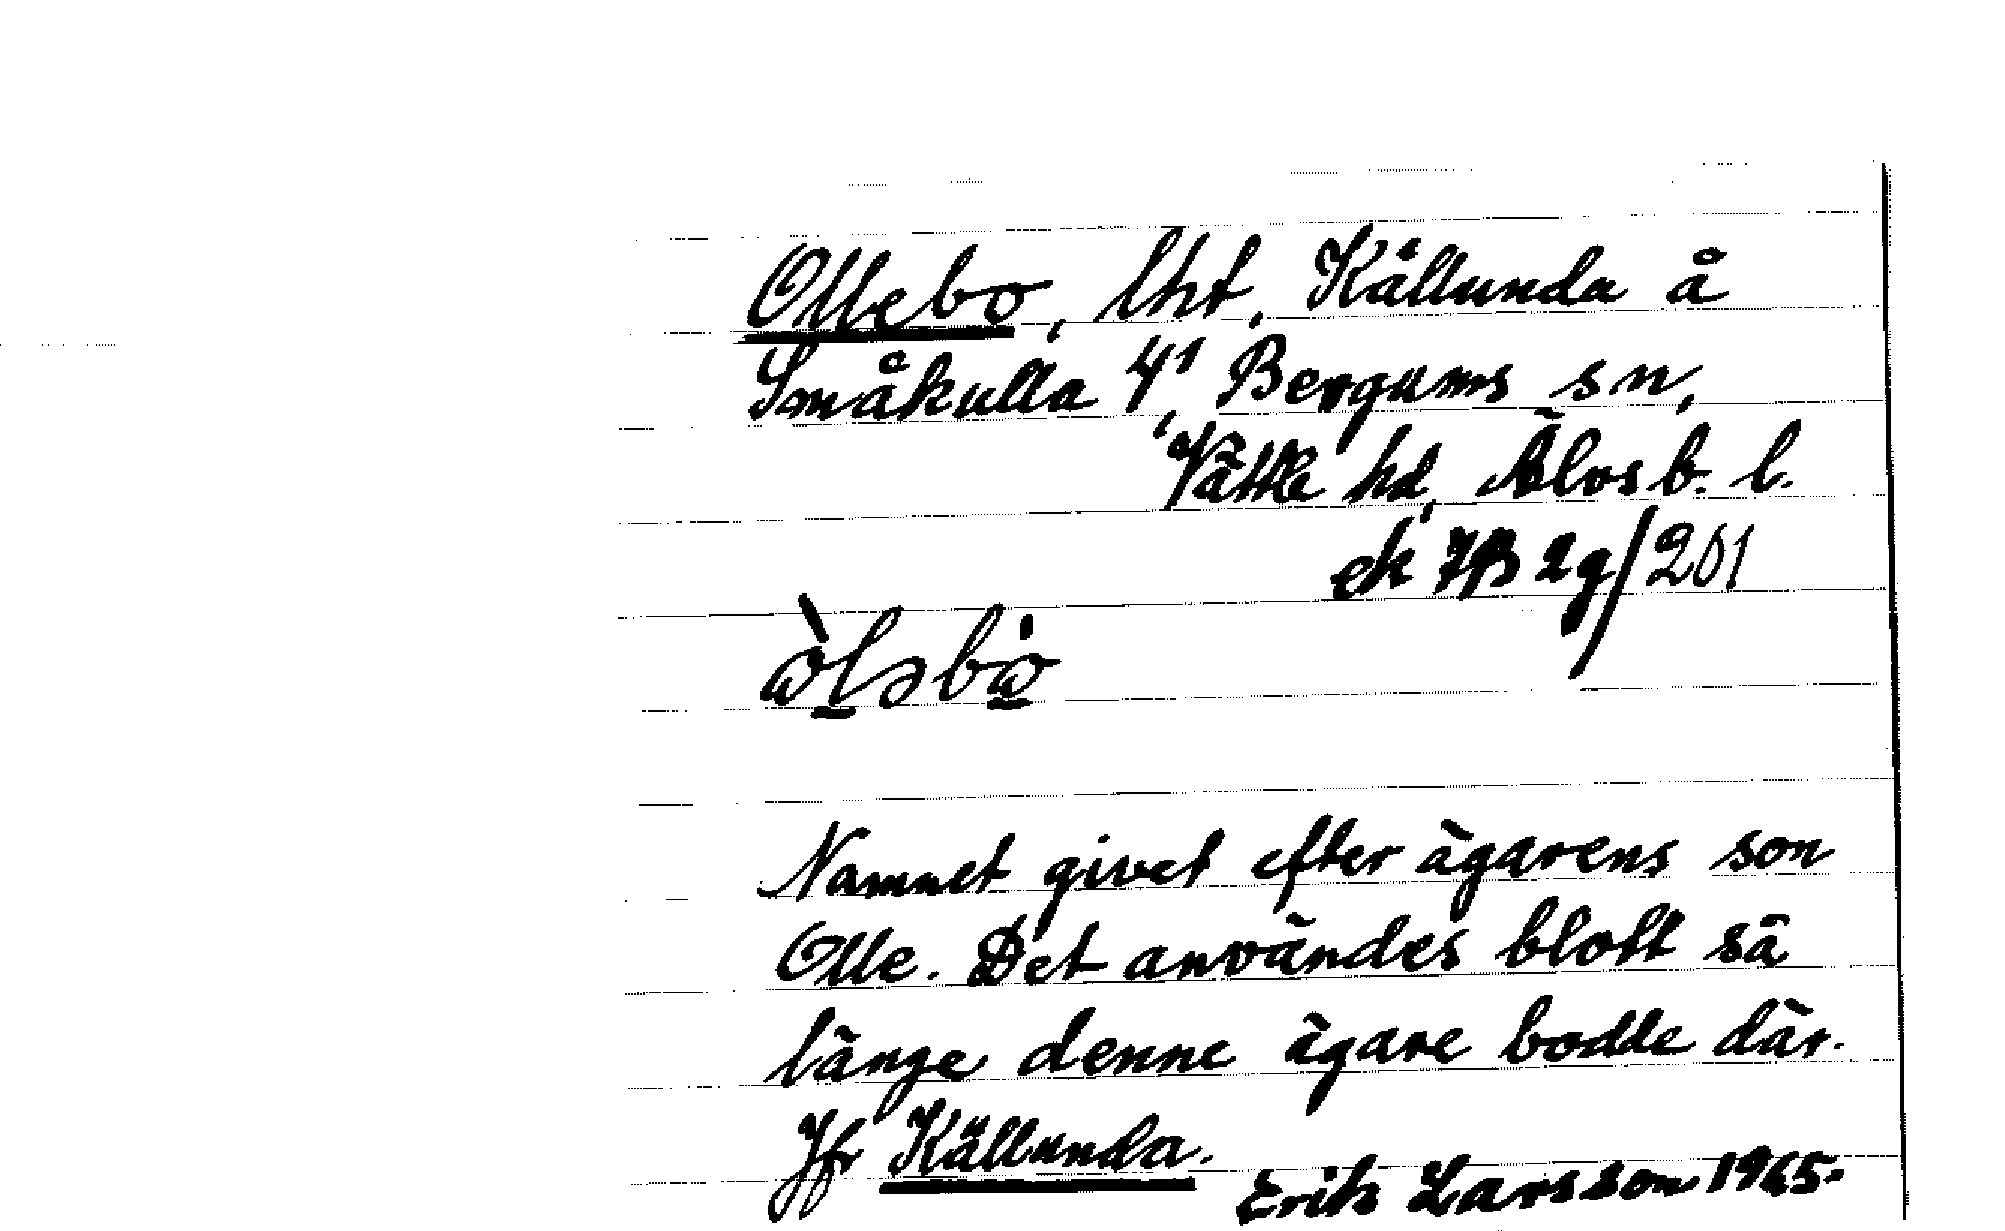 Ollebo, lht, Källunda å
Småkulla 4¹, Bergums sn,
Vättle hd, Älvsb. l.
ek 7B 2g/201
Namnet givet efter ägarens son
Olle. Det användes blott så
länge denne ägare bodde där.
Jfr Källunda.
Erik Larsson 1965.